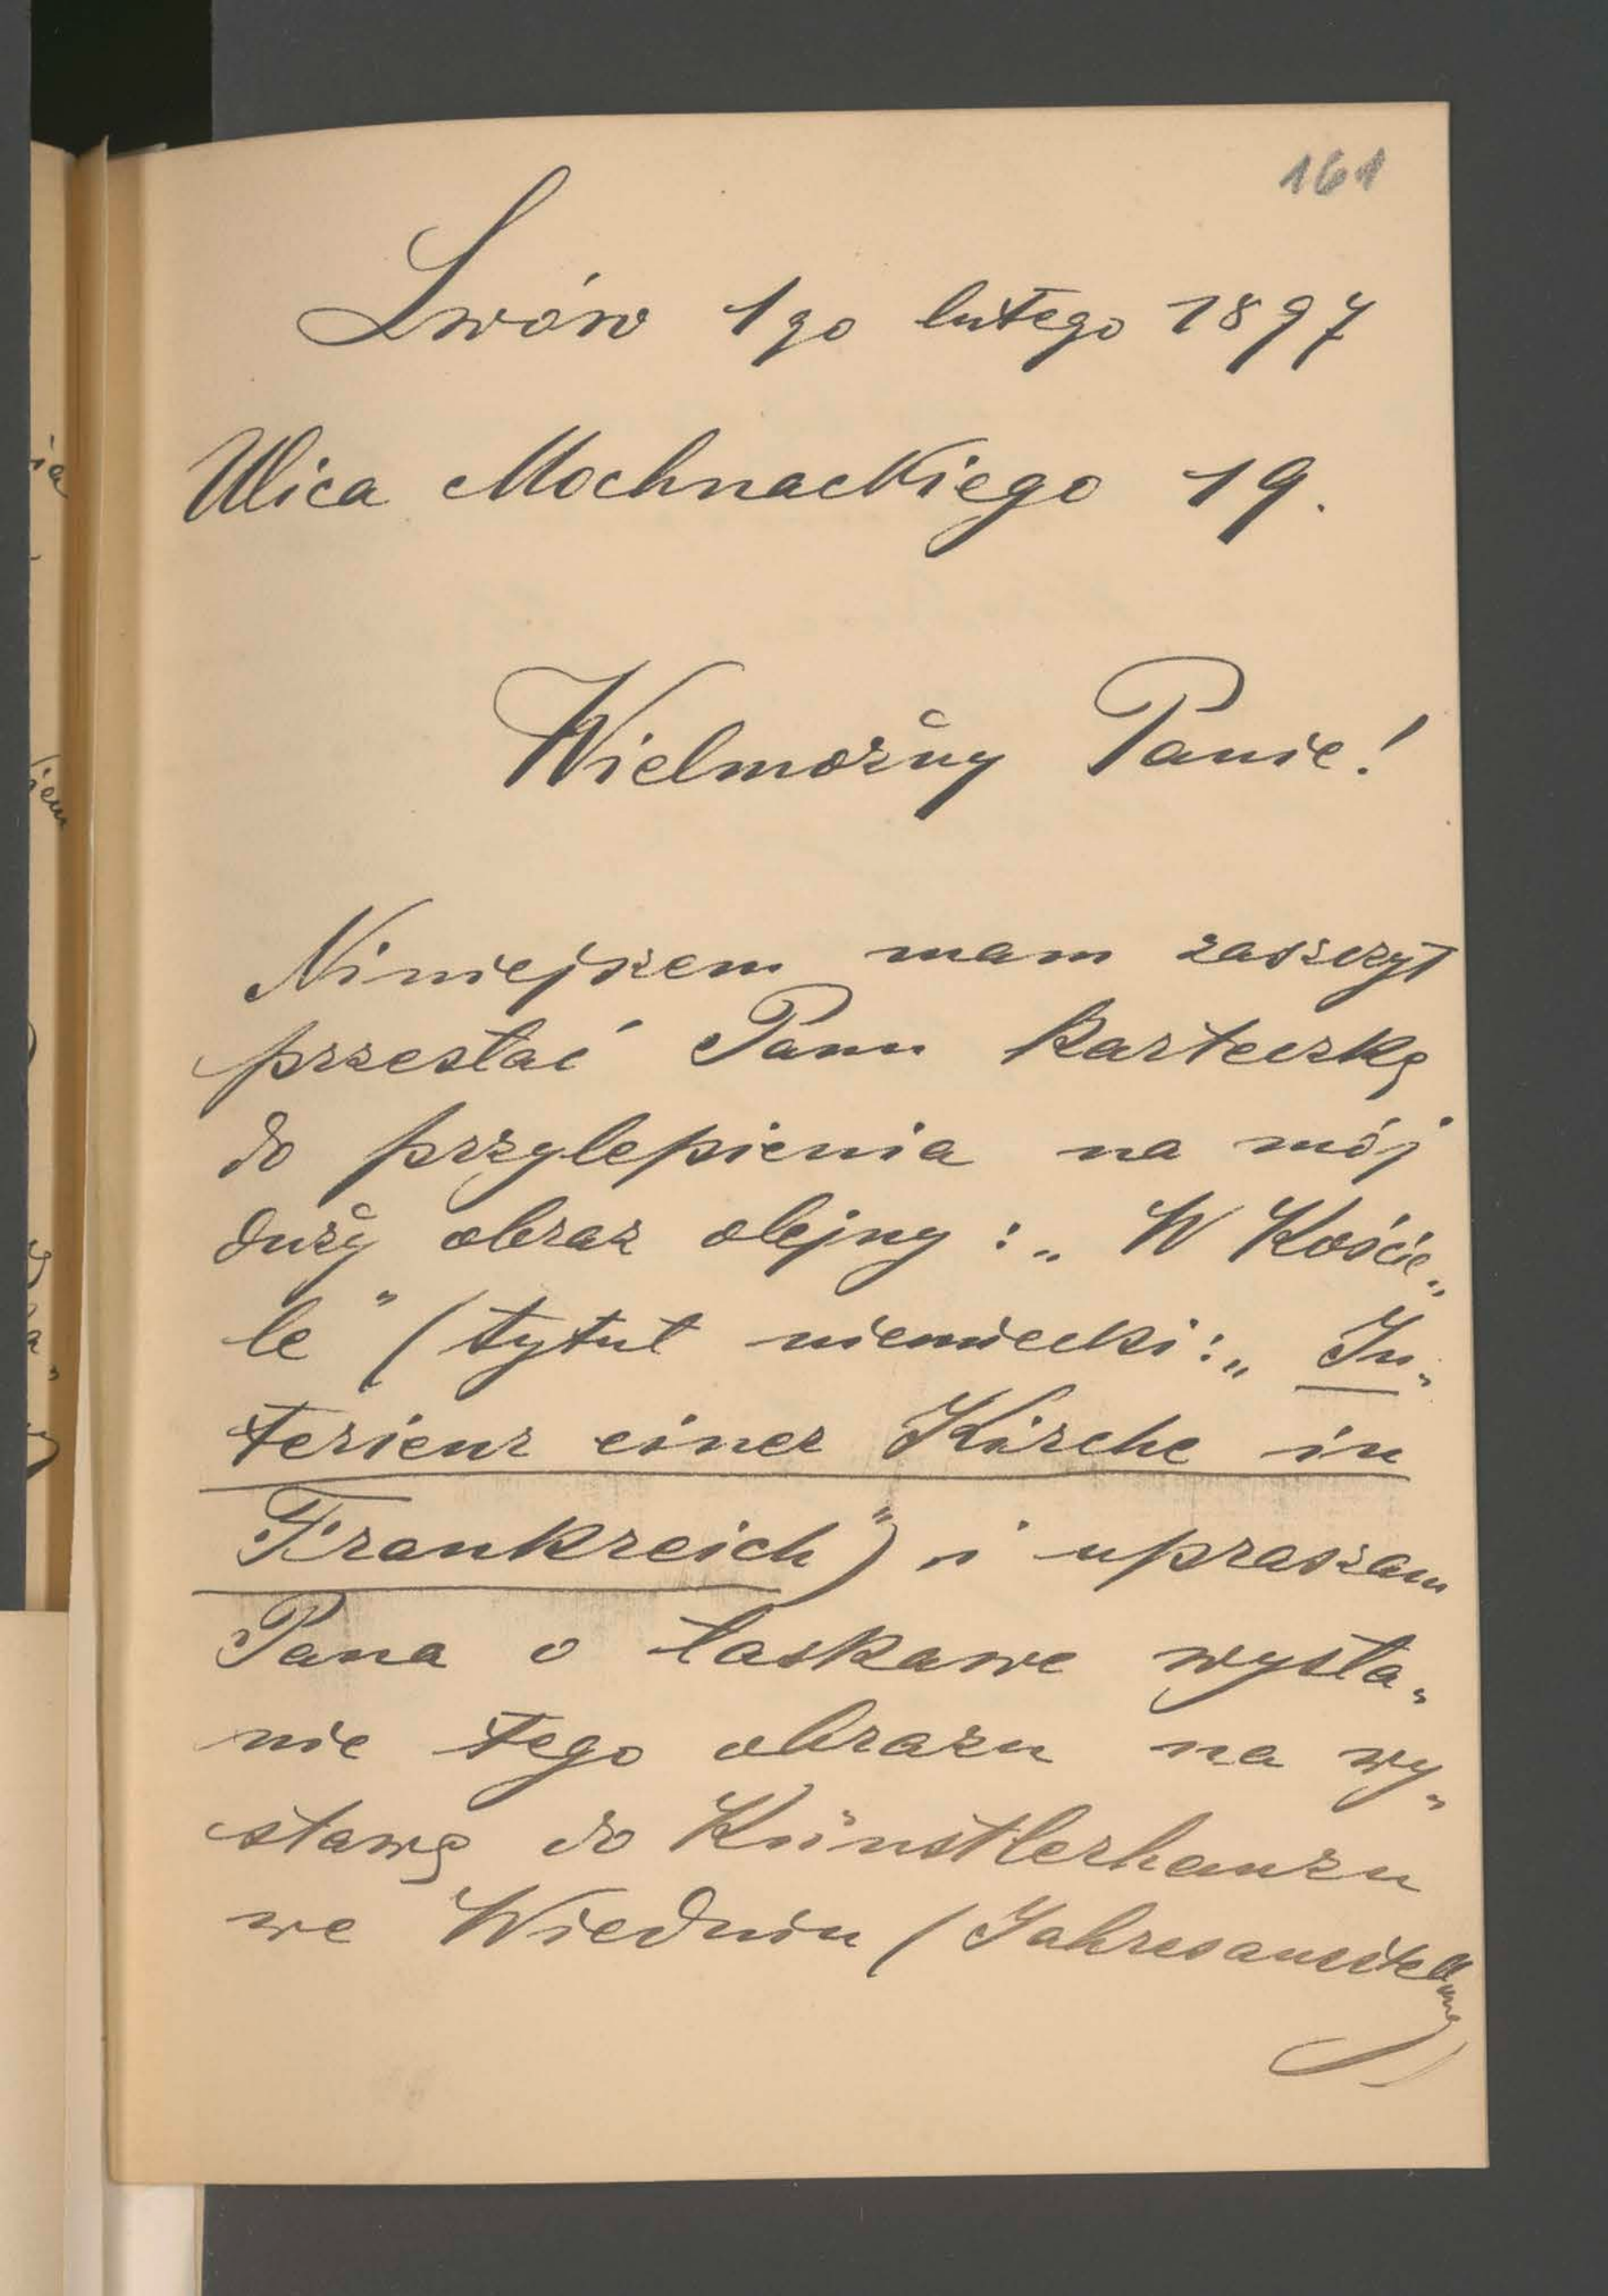 161
Lwów 1go lutego 1897
Ulica Mochnackiego 19.
Wielmożny Panie!
Niniejszem mam zaszczyt
przesłać Panu karteczkę
do przylepienia na mój
duży obraz olejny: „W Koście„
le" (tytuł niemiecki: „In„
terieur einer Kirche in
Frankreich") i upraszam
Pana o łaskawe wysła„
nie tego obrazu na wy„
stawę do Künstlerhauzu
we Wiedniu (Jahresausstellung)